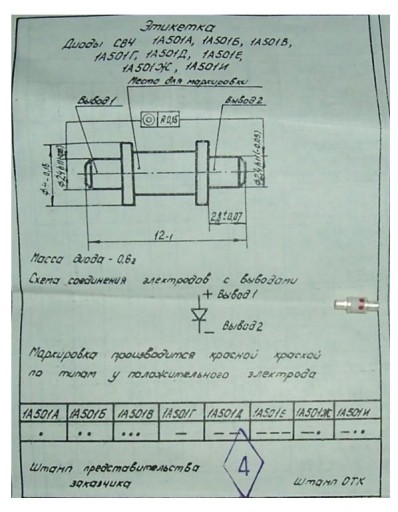 Этикетка
Диоды СВЧ 1А501А, 1А501Б, 1А501В,
1А501Г, 1А501Д, 1А501Е,
1А501Ж, 1А501И
Место для маркировки
Вывод 1
Вывод 2
R0,15
2,8±0,07
12-1
Масса диода - 0,6г
Схема соединения электродов с выводами
+ Вывод 1
- Вывод 2
Маркировка производится красной краской
по типам у положительного электрода
1А501А 1А501Б 1А501В 1А501Г 1А501Д 1А501Е 1А501Ж 1А501И
4
Штамп представительства
заказчика
Штамп ОТК